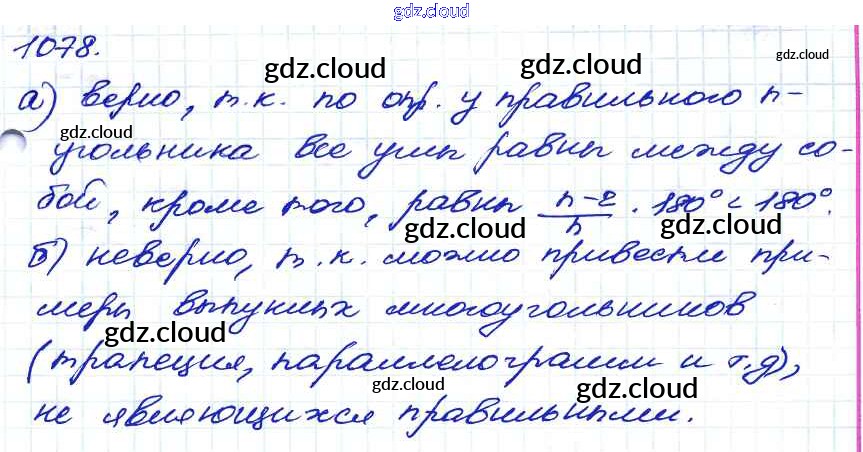 gdz.cloud
1078.
gdz.cloud
а) верно, т.к. по опр. у правильного n-
gdz.cloud
gdz.cloud
угольника все углы равны между со-
бой, кроме того, равны (n-2)/n · 180° < 180°.
gdz.cloud
gdz.cloud
б) неверно, т.к. можно привести при-
gdz.cloud
меры выпуклых многоугольников
gdz.cloud
(трапеция, параллелограмм и т.д),
gdz.cloud
gdz.cloud
не являющихся правильными.
gdz.cloud